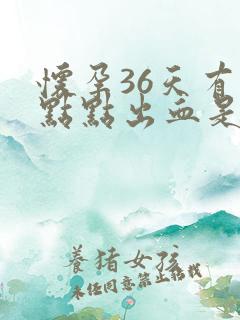 懷孕36天有
點點出血是
養猪女孩
未经同意禁止转载